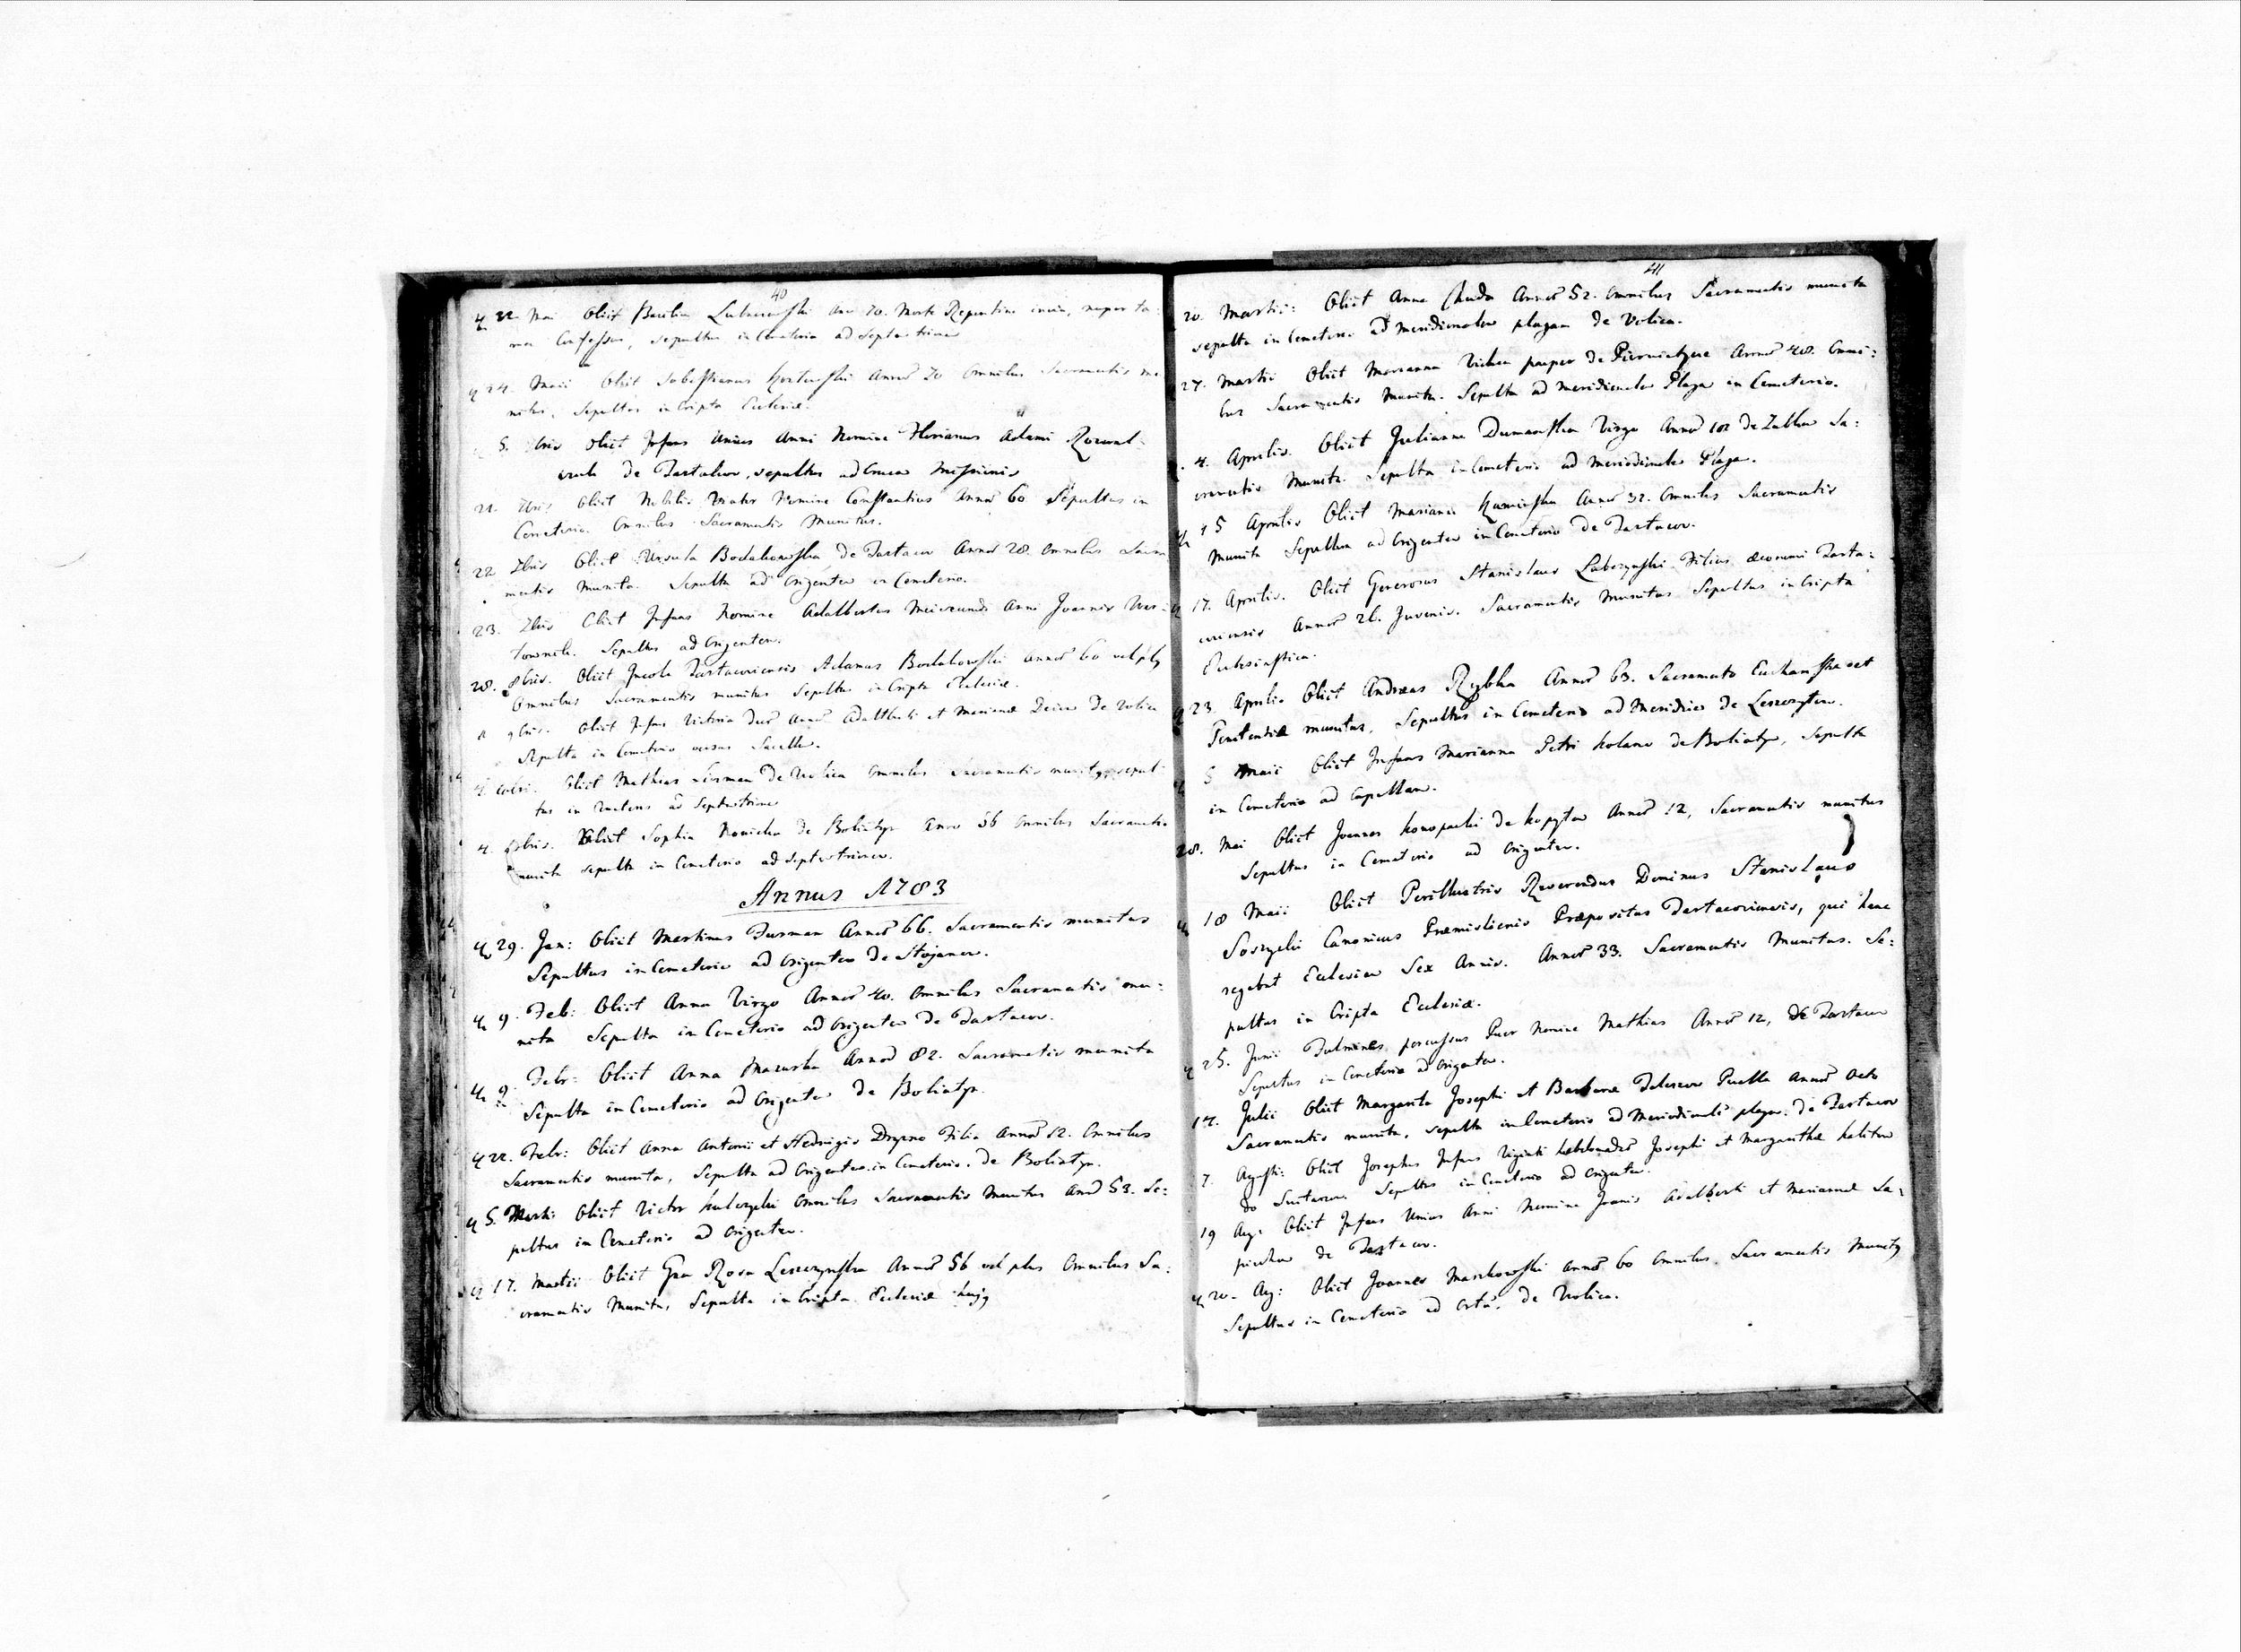 40
22. Mai Obiit Basilius Ann 70. Morte Repentina
Confessus, sepultus in Cemeterio ad Septentrionem
24. Maii Obiit Sebestianus Annor 70 Omnibus Sacramentis mu
nitus, Sepultus in Cripta Ecclesiæ.
5. 7bris Obiit Infans Unius Anni Nomine Florianus Adami
de Tartakow, sepultus ad Crucem Missionis
21. 7bris Obiit Nobilis Nomine Constantius Annor 60 Sepultus in
Cemeterio Omnibus Sacramentis Munitus.
22 7bris Obiit Ursula Bodakowska de Tartacow Annor 28. Omnibus Sacra
mentis Munita. Sepulta ad Origentem in Cemeterio.
23. 7bris Obiit Infans Nomine Adalbertus Anni Joannis
Sepultus ad Origentem.
28. 8bris. Obiit Incola Tartacoviensis Adamus Bodakowski Annor 60 vel plq
Omnibus Sacramentis munitus Sepultus in Cripta Ecclesiæ.
9bris. Obiit Infans Victoria Annor Adalberti et Mariannæ de Volica
Sepulta in Cemeterio versus
Obiit Mathias de Volica Omnibus Sacramentis sepul
tus in ad Septentrionem
4. Obiit Sophia de Boliatyn Anno 56 Omnibus Sacramentis
munita sepulta in Cemeterio ad Septentrionem.
Annus 1783
29. Jan: Obiit Martinus Furman Annor 66. Sacramentis munitus
Sepultus in Cemeterio ad Origentem de Stojanow.
9. Feb: Obiit Anna Virgo Annor 40. Omnibus Sacramentis mu:
nita Sepulta in Cemeterio ad Origentem de Tartacow.
9. Febr: Obiit Anna Mazurka Annor 82. Sacramentis munita
Sepulta in Cemeterio ad Origentem de Boliatyn.
22. Febr: Obiit Anna Antonii et Hedvigis Filia Annor 12. Omnibus
Sacramentis munita, Sepulta ad Origentem in Cemeterio. de Boliatyn.
5. Martii Obiit Victor Omnibus Sacramentis Munitus Annor 53. Se:
pultus in Cemeterio ad Origentem.
17. Martii Obiit Gna Rosa Leszczynska Annor 56 vel plus Omnibus Sa:
cramentis Munita, Sepulta in Cripta Ecclesiæ hujq
41
20. Martii: Obiit Anna Annor 52. Omnibus Sacramentis munita
sepulta in Cemeterio ad Meridionalem plagam de Volica.
27. Martii Obiit Marianna pauper de Annor 48. Omni:
bus Sacramentis Munita. Sepulta ad Meridionalem Plagam in Cemeterio.
4. Aprilis. Obiit Julianna Dumanska Virgo Annor de Sa:
cramentis Munita. Sepulta in Cemeterio ad Meridionalem Plagam.
15 Aprilis Obiit Marianna Kaminska Annor 32. Omnibus Sacramentis
Munita Sepulta ad Origentem in Cemeterio de Tartacow.
17. Aprilis. Obiit Generosus Stanislaus Filius œconomi Tarta:
coviensis Annor 26. Juvenis. Sacramentis Munitus Sepultus in Cripta
Ecclesiastica.
23. Aprilis Obiit Andreas Rybka Annor 63. Sacramento Eucharistiæ et
Penitentiæ munitus, Sepultus in Cemeterio ad Meridiem de Leszczytow.
5 Maii Obiit Infans Marianna Petri de Boliatyn, Sepulta
in Cemeterio ad Capellam.
28. Mai Obiit Joannes Konopacki de Kopytow Annor 12, Sacramentis munitus
Sepultus in Cemeterio ad Origentem.
18 Maii Obiit Perillustris Reverendus Dominus Stanislaus
Canonicus Præmisliensis Præpositus Tartacoviensis, qui hanc
regebat Ecclesiam Sex Annis. Annor 33. Sacramentis Munitus. Se:
pultus in Cripta Ecclesiæ.
25. Junii Fulmine percussus Puer Nomine Mathias Annor 12, de Tartacow
Sepultus in Cemeterio ad Origentem.
17. Julii Obiit Margarita Josephi et Barbaræ Puella Annor Octo
Sacramentis munita, sepulta in Cemeterio ad Meridionalem plagam. de Tartacow
7. Augusti: Obiit Josephus Infans Viginti hebdomadar Josephi et Margarithæ
de Sepultus in Cemeterio ad Origentem.
19 Aug: Obiit Infans Unius Anni Nomine Joannis Adalberti et Mariannæ
de Tartacow.
20. Aug: Obiit Joannes Maszkowski Annor 60 Omnibus Sacramentis Munitq
Sepultus in Cemeterio ad Ortū. de Volica.